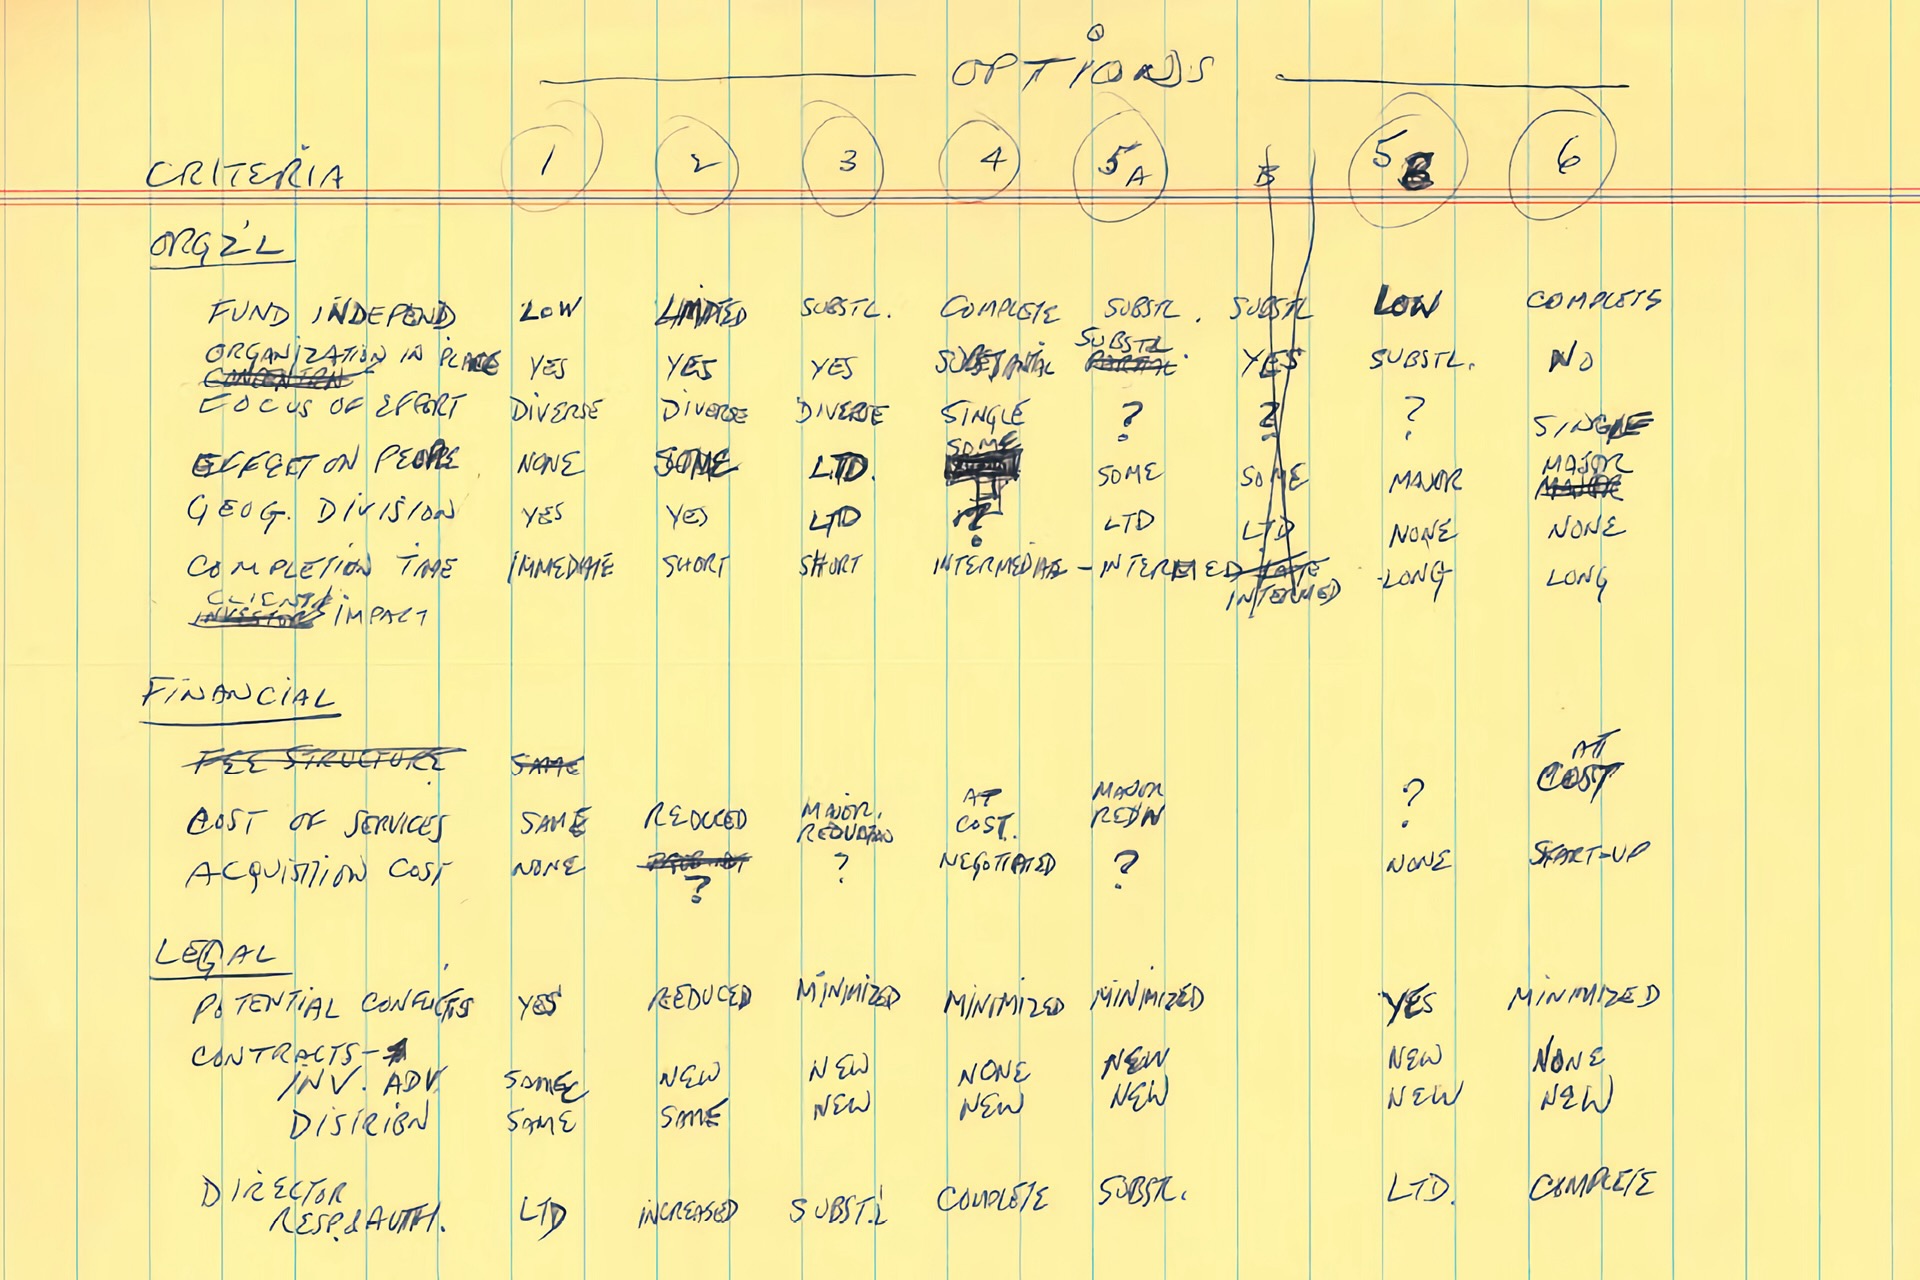 OPTIONS
CRITERIA 1 2 3 4 5A B 5B 6
ORGZ'L
FUND INDEPEND LOW LIMITED SUBSTL. COMPLETE SUBSTL. SUBSTL LOW COMPLETE
SUBSTL.
ORGANIZATION IN PLACE YES YES YES SUBSTANTIAL PARTIAL YES SUBSTL. NO
FOCUS OF EFFORT DIVERSE DIVERSE DIVERSE SINGLE ? ? ? SINGLE
SOME MAJOR
EFFECT ON PEOPLE NONE SOME LTD. SOME SOME MAJOR MAJOR
GEOG. DIVISION YES YES LTD ? LTD LTD NONE NONE
COMPLETION TIME IMMEDIATE SHORT SHORT INTERMEDIATE - INTERMED LATE LONG LONG
INTERMED
CLIENT
INVESTOR IMPACT
FINANCIAL
FEE STRUCTURE SAME
AT
COST
COST OF SERVICES SAME REDUCED MAJOR REDUCTION AT COST. MAJOR REDN ?
ACQUISITION COST NONE ? ? NEGOTIATED ? NONE START-UP
LEGAL
POTENTIAL CONFLICTS YES REDUCED MINIMIZED MINIMIZED MINIMIZED YES MINIMIZED
CONTRACTS-
INV. ADV. SAME NEW NEW NONE NEW NEW NONE
DISTRIBN SAME SAME NEW NEW NEW NEW NEW
DIRECTOR
RESP. & AUTH. LTD INCREASED SUBST'L COMPLETE SUBSTL. LTD. COMPLETE